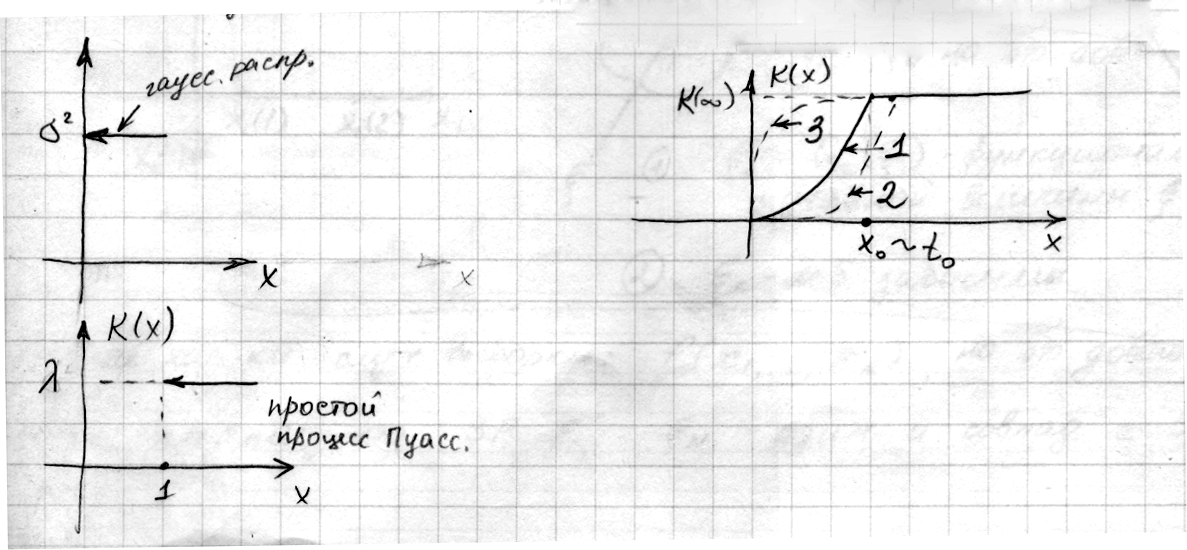 гаусс. распр.
σ²
x
x
K(x)
λ
простой
процесс Пуасс.
1
x
K(x)
K(∞)
3
1
2
x₀ ~ t₀
x